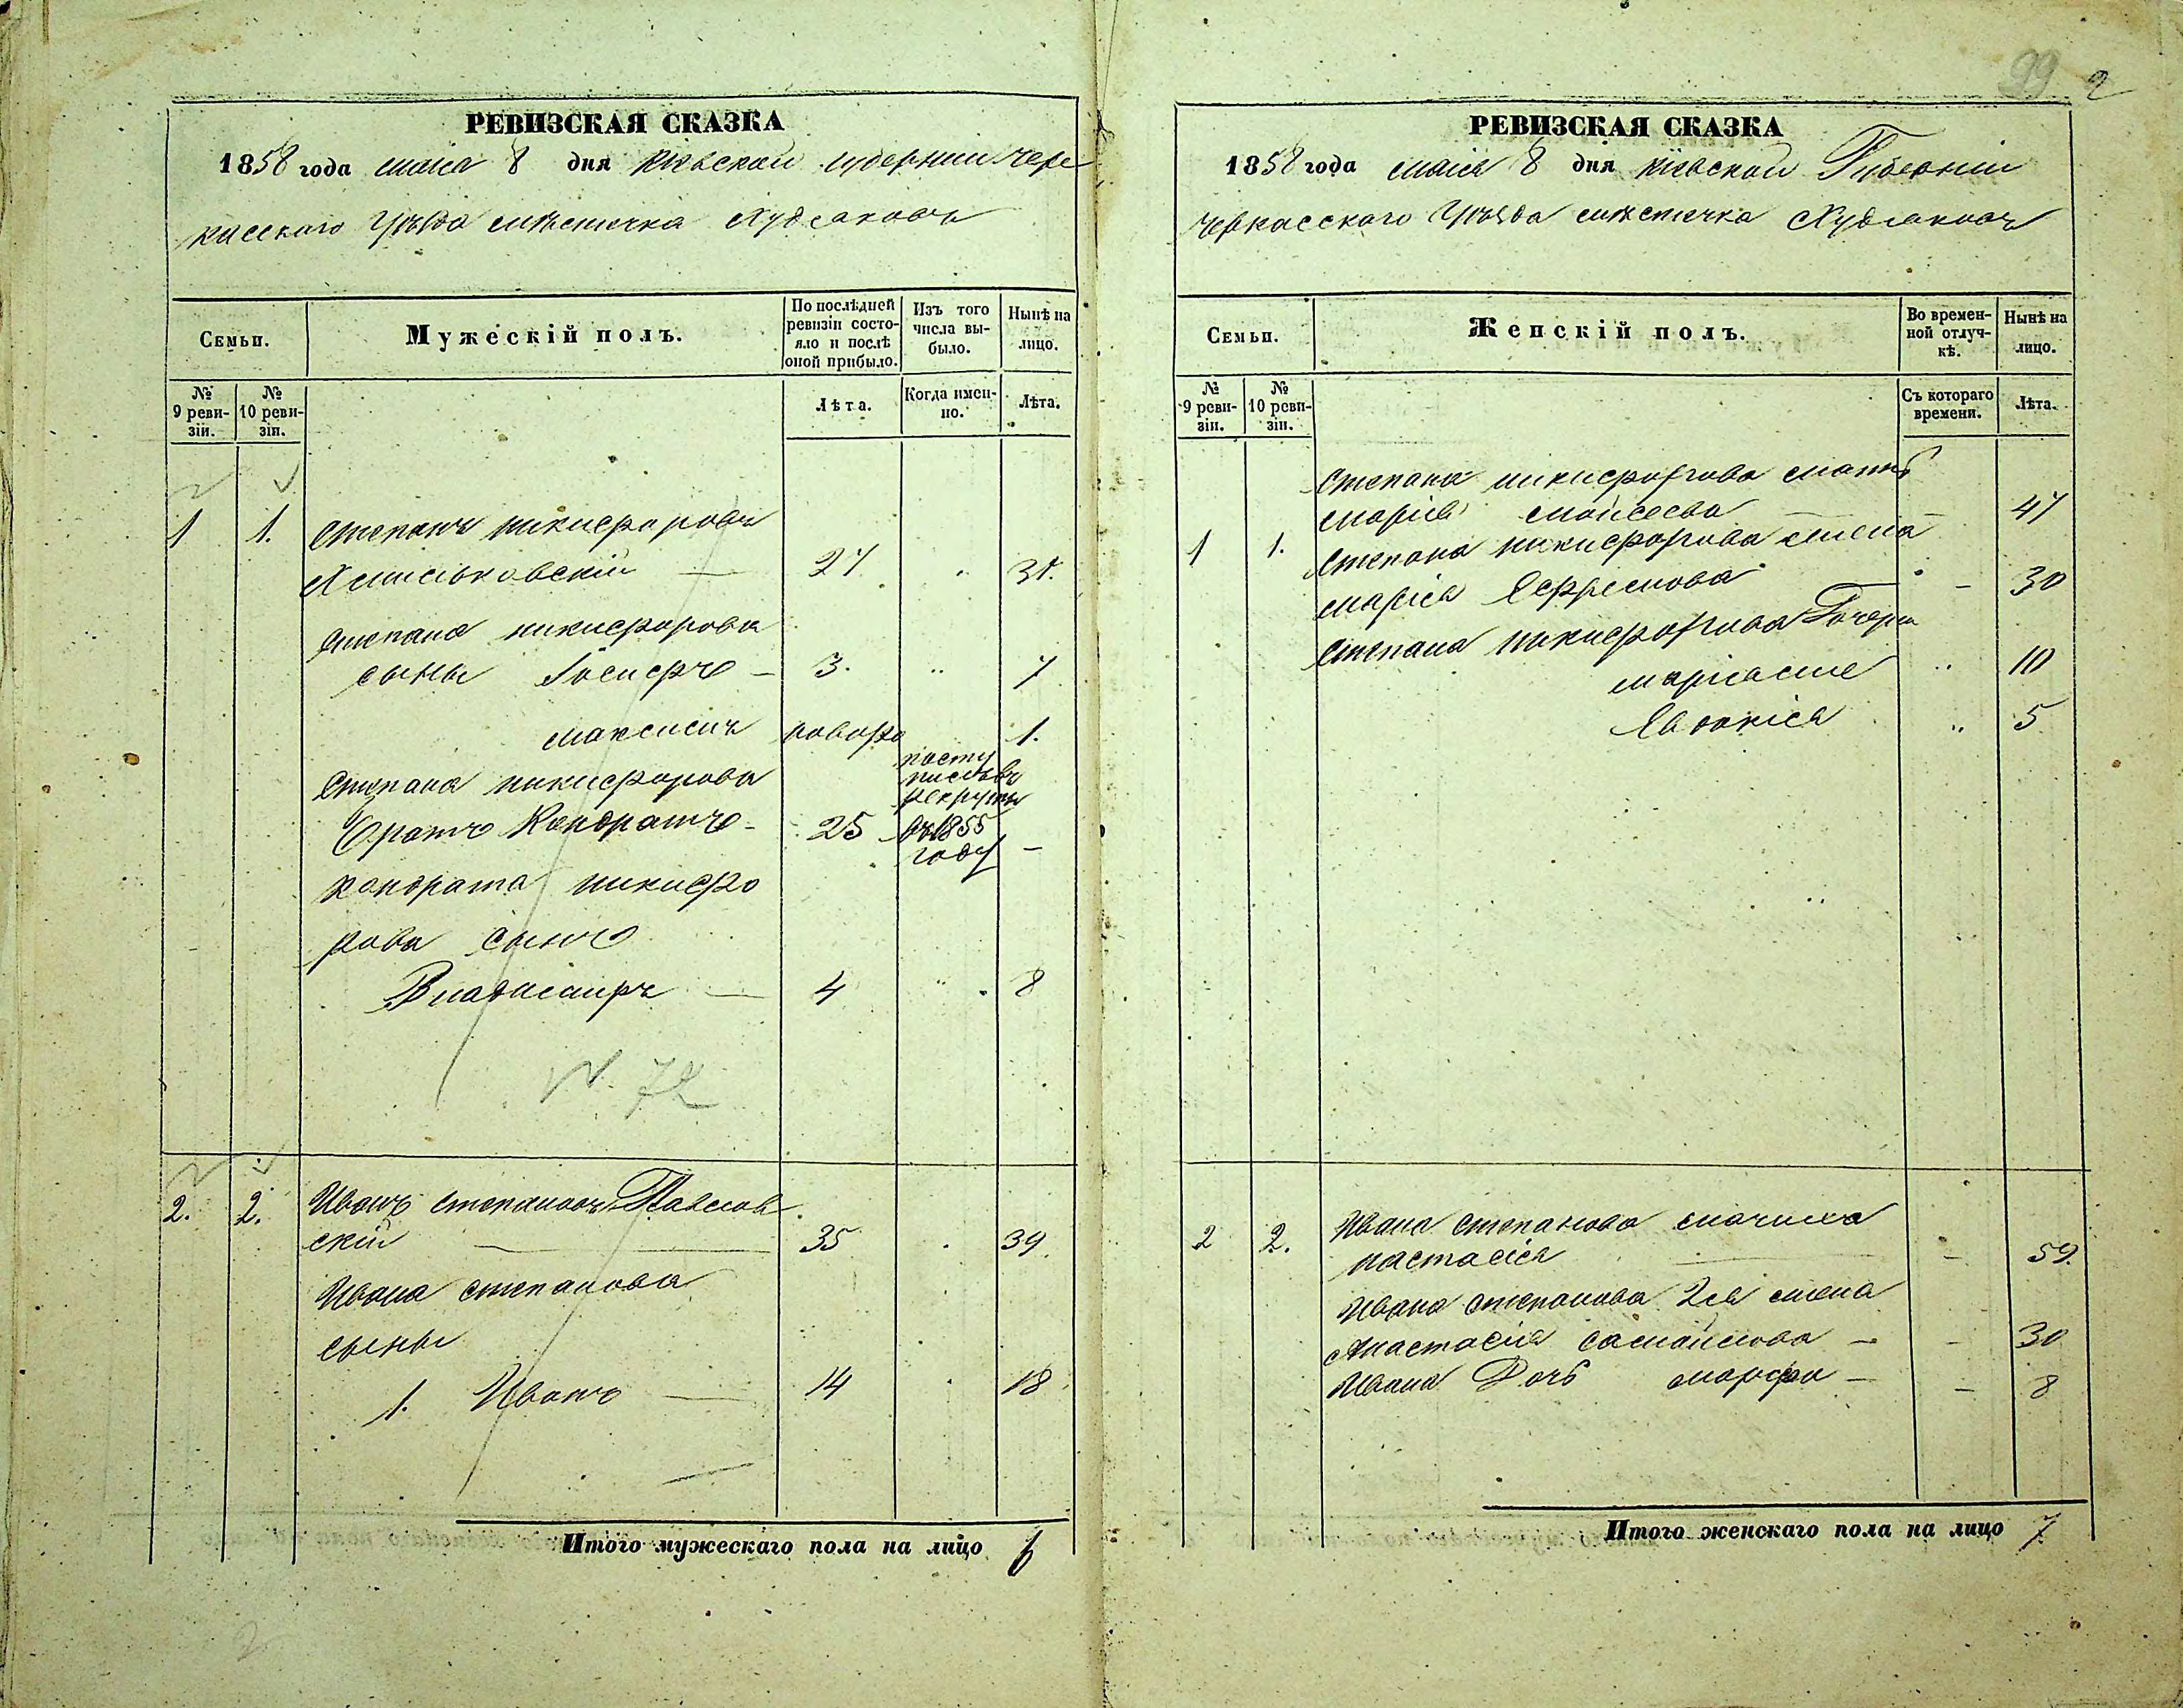 99 2
РЕВИЗСКАЯ СКАЗКА
1858 года маія 8 дня Кіевской губерніи Чер
касскаго Уѣзда мѣстечка Худяковъ
Семьи.
Мужескій полъ.
По послѣдней ревизіи состо-
яло и послѣ
оной прибыло.
Изъ того
числа вы-
было.
Нынѣ на
лицо.
№
9 реви-
зіи.
№
10 реви-
зіи.
Лѣта.
Когда имен-
но.
Лѣта.
1 1. Степанъ Никифоровъ
27 " 31.
Степана Никифорова
сыны Іосифъ - 3. " 7
Максимъ новоро 1.
Степана Никифорова
братъ Кондратъ - 25 - 
посту
рекруты
въ 1855
году
Кондрата Никифо
рова сынъ
Владиміръ - 4 " 8
N. 72
2. 2. Иванъ Степановъ Павлов
скій 35 39.
Ивана Степанова
сыны
1. Иванъ - 14 18
Итого мужескаго пола на лицо 6
2
РЕВИЗСКАЯ СКАЗКА
1858 года маія 8 дня Кіевской Губерніи
Черкасскаго Уѣзда мѣстечка Худяковъ
Семьи.
Женскій полъ.
Во времен-
ной отлуч-
кѣ.
Нынѣ на
лицо.
№
9 реви-
зіи.
№
10 реви-
зіи.
Съ котораго
времени.
Лѣта.
Степана Никифорова мать
Марія Моисеева 47
1 1. Степана Никифорова жена
Марія Ефремова - 30
Степана Никифорова дочери
" 10
Евдокія " 5
2 2. Ивана Степанова мачиха
Настасія - 59.
Ивана Степанова 2я жена
Анастасія - - 30
Ивана дочь Марфа - - 8
Итого женскаго пола на лицо 7.